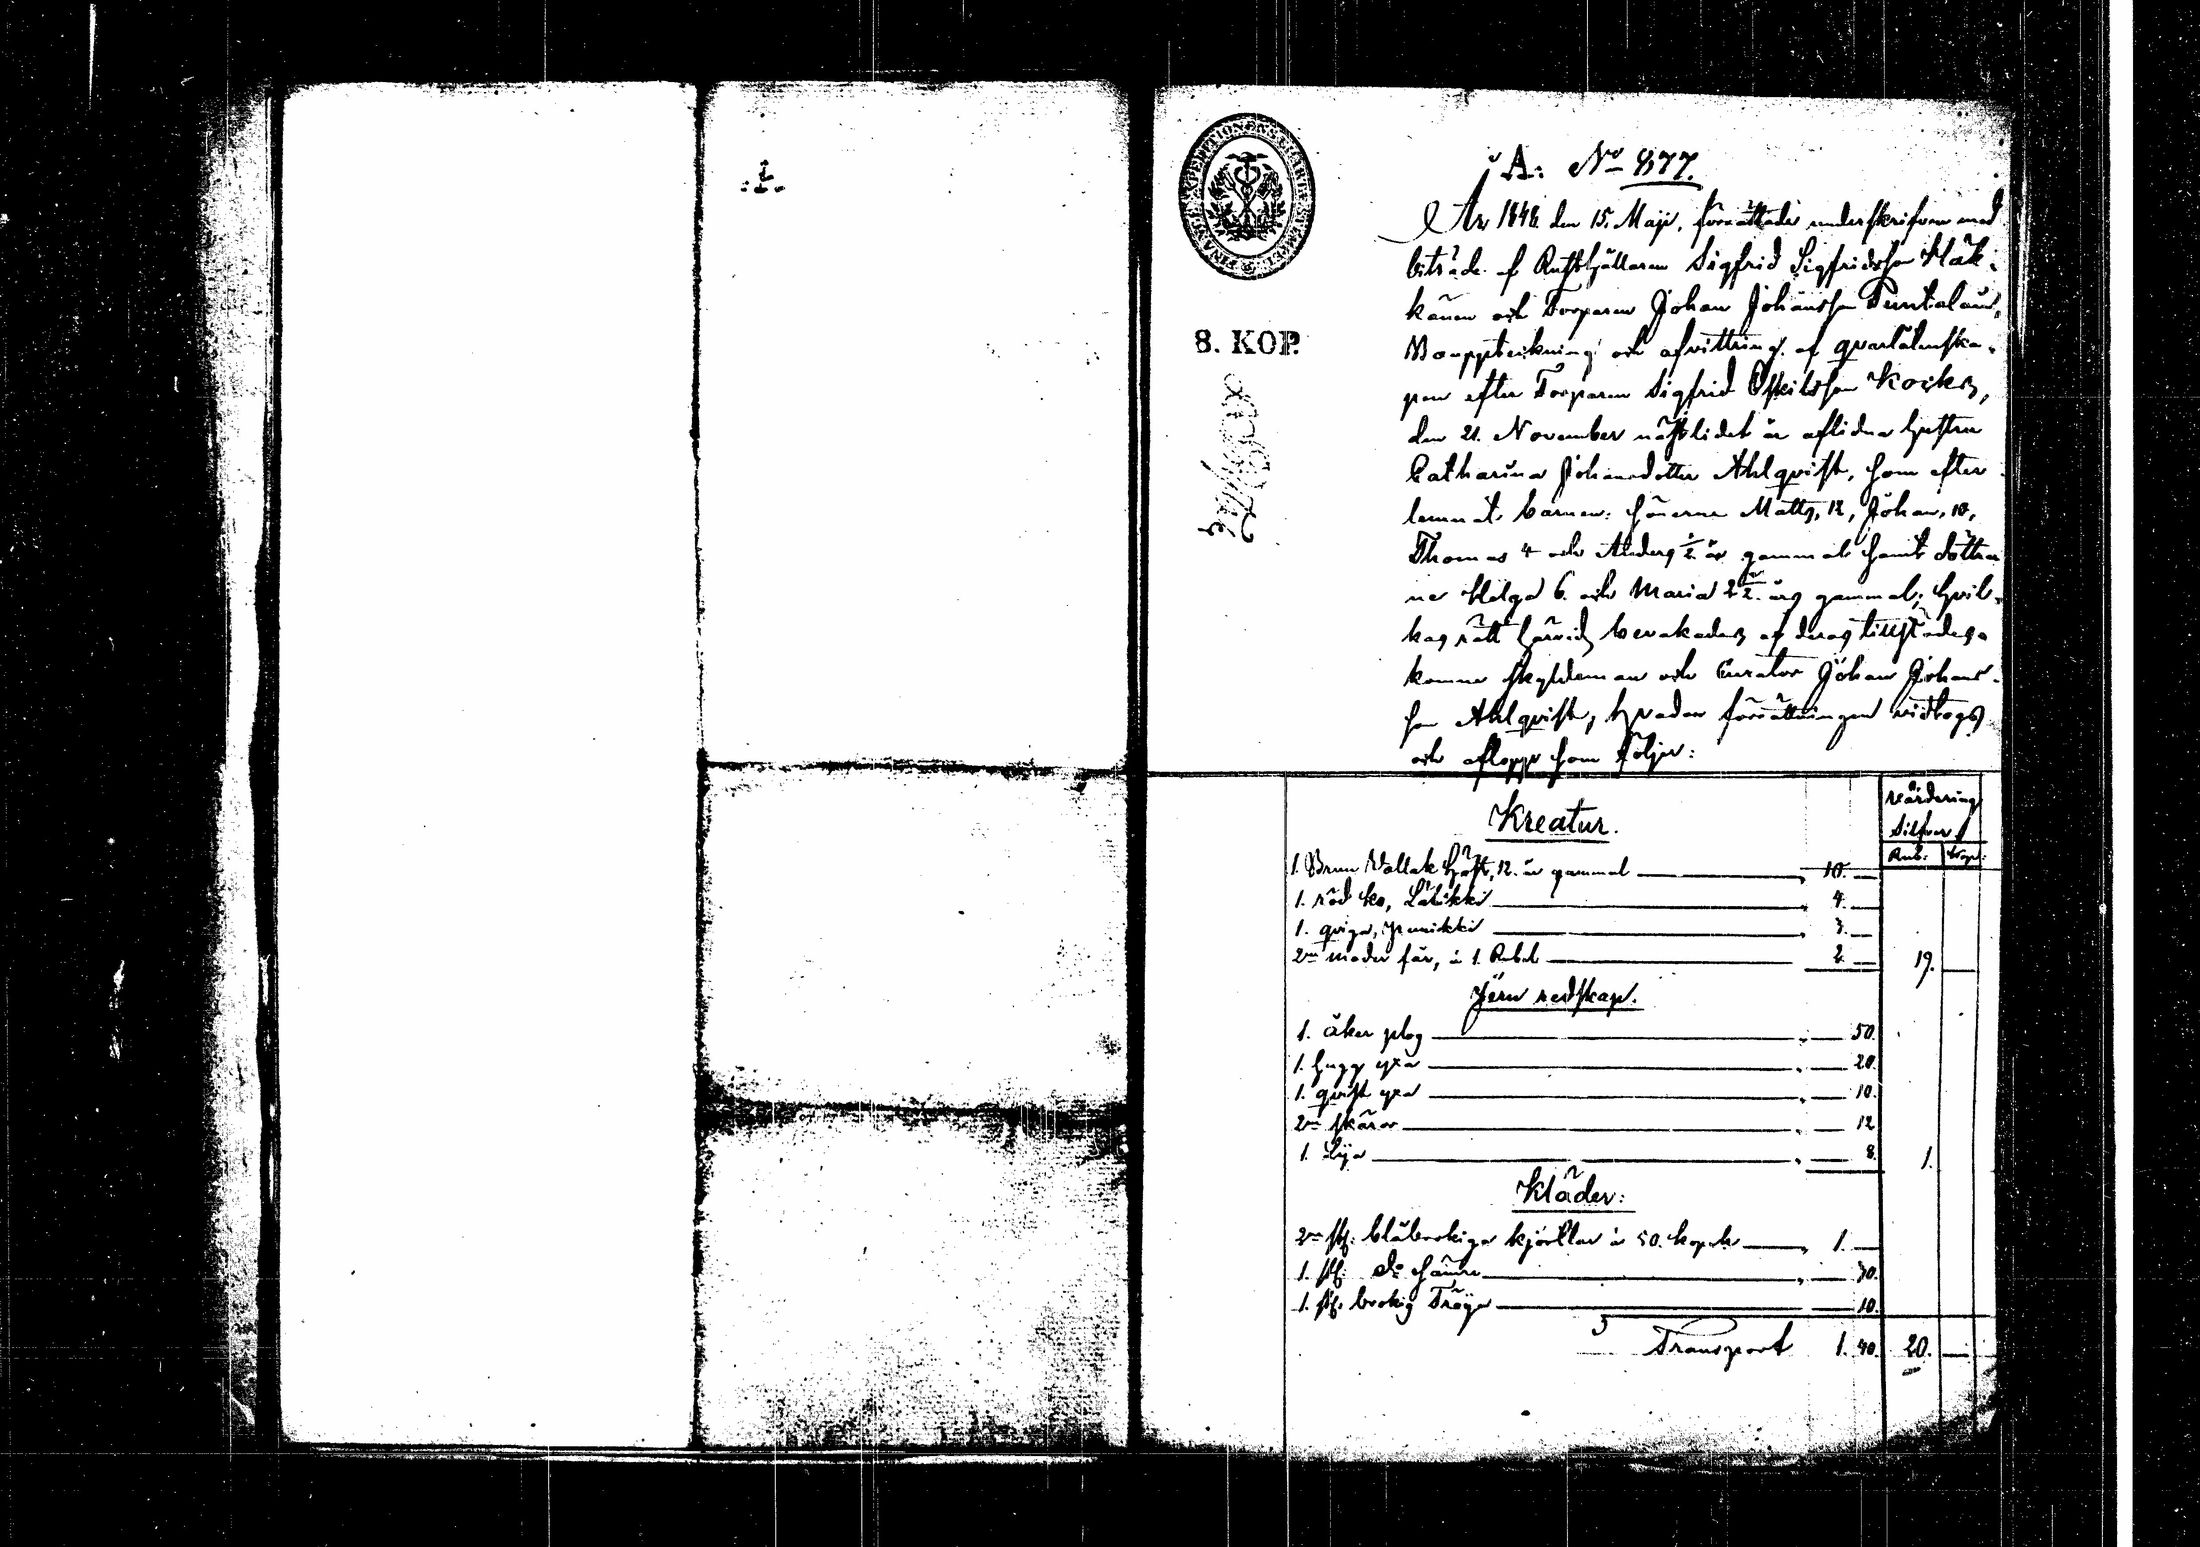 A: No 877.
FINANCE EXPEDITIONENS CHARTÆ STEMPEL
8. KOP.
År 1848 den 15. Maji, förrättade underskrifven med
biträde af Rusthållaren Sigfrid Sigfridsson Häk-
känen och Torparen Johan Johansson
Bouppteckning och afvittring af qvarlåtenska-
pen efter Torparen Sigfrid Eskilsson
den 21. November nästlidet år aflidna hustru
Catharina Johansdotter Ahlqvist, som efter
lemnat barnen: sönerne Matts, 12, Johan, 10,
Thomas 4 och Anders ½ år gammal samt döttrar
ne Helga 6. och Maria 2½ års gammal; hvil-
kas rätt härvid bevakades af deras tillstädes
komne skyldeman och Curator Johan Johans-
son Ahlqvist, hvadan förrättningen vidtogs
och aflopp som följer:
Värdering
Silfver
Rub: Kop:
Kreatur.
1. Brun Vallak häst, 12. år gammal 10. —
1. röd ko, Lätikki 4. —
1. qviga, 3. —
2ne moder får, à 1. Rubel 2. — 19. —
Jern redskap.
1. åker plog 50.
1. hugg yxa 20.
1. qvist yxa 10.
2ne skäror 12
1. Lija 8. 1.
Kläder:
2ne st: blåbrokiga kjortlar à 50. kopek 1. —
1. st: do sämre 30.
1. st: brokig Tröja 10.
Transport 1. 40. 20. —